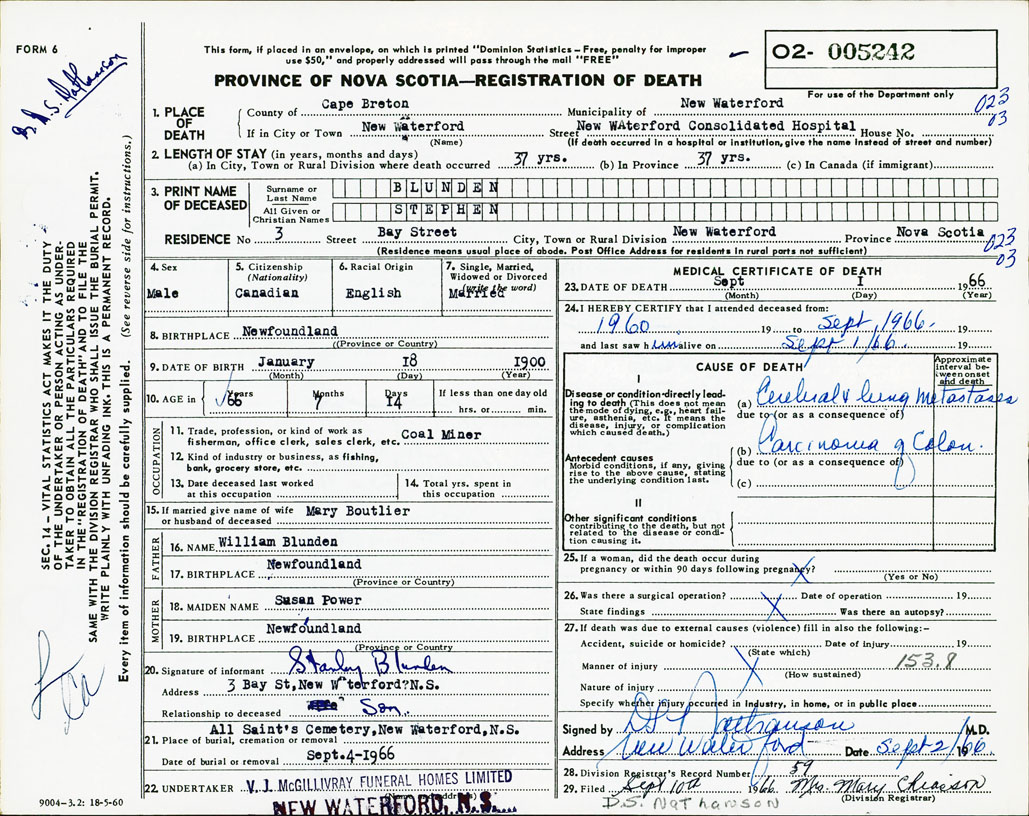 FORM 6
B. D.S. Nathanson
This form, if placed in an envelope, on which is printed "Dominion Statistics – Free, penalty for improper
use $50," and properly addressed will pass through the mail "FREE"
PROVINCE OF NOVA SCOTIA—REGISTRATION OF DEATH
O2- 005242
For use of the Department only
023
03
1. PLACE OF DEATH
County of Cape Breton Municipality of New Waterford
If in City or Town New Waterford Street New WAterford Consolidated Hospital House No.
(Name) (If death occurred in a hospital or institution, give the name instead of street and number)
2. LENGTH OF STAY (in years, months and days)
(a) In City, Town or Rural Division where death occurred 37 yrs. (b) In Province 37 yrs. (c) In Canada (if immigrant)
3. PRINT NAME OF DECEASED
Surname or Last Name BLUNDEN
All Given or Christian Names STEPHEN
RESIDENCE No 3 Street Bay Street City, Town or Rural Division New Waterford Province Nova Scotia
(Residence means usual place of abode. Post Office Address for residents in rural parts not sufficient)
023
03
4. Sex
Male
5. Citizenship
(Nationality)
Canadian
6. Racial Origin
English
7. Single, Married, Widowed or Divorced
(write the word)
Married
8. BIRTHPLACE Newfoundland
((Province or Country)
9. DATE OF BIRTH January 18 1900
(Month) (Day) (Year)
10. AGE in Years 66 Months 7 Days 14 If less than one day old
hrs. or min.
OCCUPATION
11. Trade, profession, or kind of work as
fisherman, office clerk, sales clerk, etc. Coal Miner
12. Kind of industry or business, as fishing,
bank, grocery store, etc.
13. Date deceased last worked
at this occupation
14. Total yrs. spent in
this occupation
15. If married give name of wife Mary Boutlier
or husband of deceased
FATHER
16. NAME William Blunden
17. BIRTHPLACE Newfoundland
(Province or Country)
MOTHER
18. MAIDEN NAME Susan Power
19. BIRTHPLACE Newfoundland
(Province or Country)
20. Signature of informant Stanley Blunden
Address 3 Bay St,New Waterford?N.S.
Relationship to deceased Son.
All Saint's Cemetery,New Waterford,N.S.
21. Place of burial, cremation or removal
Date of burial or removal Sept.4-1966
22. UNDERTAKER V. J. McGILLIVRAY FUNERAL HOMES LIMITED
NEW WATERFORD, N.S.
9004–3.2: 18-5-60
MEDICAL CERTIFICATE OF DEATH
23. DATE OF DEATH Sept I 1966
(Month) (Day) (Year)
24. I HEREBY CERTIFY that I attended deceased from:
1960 19 to Sept, 1966. 19
and last saw him alive on Sept 1/66. 19
CAUSE OF DEATH
Approximate interval between onset and death
I
Disease or condition directly leading to death (This does not mean the mode of dying, e.g., heart failure, asthenia, etc. It means the disease, injury, or complication which caused death.)
(a) Cerebral & lung metastases
due to (or as a consequence of)
(b) Carcinoma of Colon.
Antecedent causes
Morbid conditions, if any, giving rise to the above cause, stating the underlying condition last.
due to (or as a consequence of)
(c)
II
Other significant conditions
contributing to the death, but not related to the disease or condition causing it.
25. If a woman, did the death occur during
pregnancy or within 90 days following pregnancy?
(Yes or No)
26. Was there a surgical operation? Date of operation 19
State findings Was there an autopsy?
27. If death was due to external causes (violence) fill in also the following:–
Accident, suicide or homicide? Date of injury 19
(State which)
Manner of injury 153.8
(How sustained)
Nature of injury
Specify whether injury occurred in Industry, in home, or in public place
Signed by D S Nathanson M.D.
Address New Waterford Date Sept 2/1966
28. Division Registrar's Record Number 59
29. Filed Sept 10th 1966 Mrs. Mary Chiasson
(Division Registrar)
D.S. NATHANSON
SEC. 14 – VITAL STATISTICS ACT MAKES IT THE DUTY
OF THE UNDERTAKER OR PERSON ACTING AS UNDER-
TAKER TO OBTAIN ALL THE PARTICULARS REQUIRED
IN THE "REGISTRATION OF DEATH" AND TO FILE THE
SAME WITH THE DIVISION REGISTRAR WHO SHALL ISSUE THE BURIAL PERMIT.
WRITE PLAINLY WITH UNFADING INK. THIS IS A PERMANENT RECORD.
Every item of information should be carefully supplied. (See reverse side for instructions.)